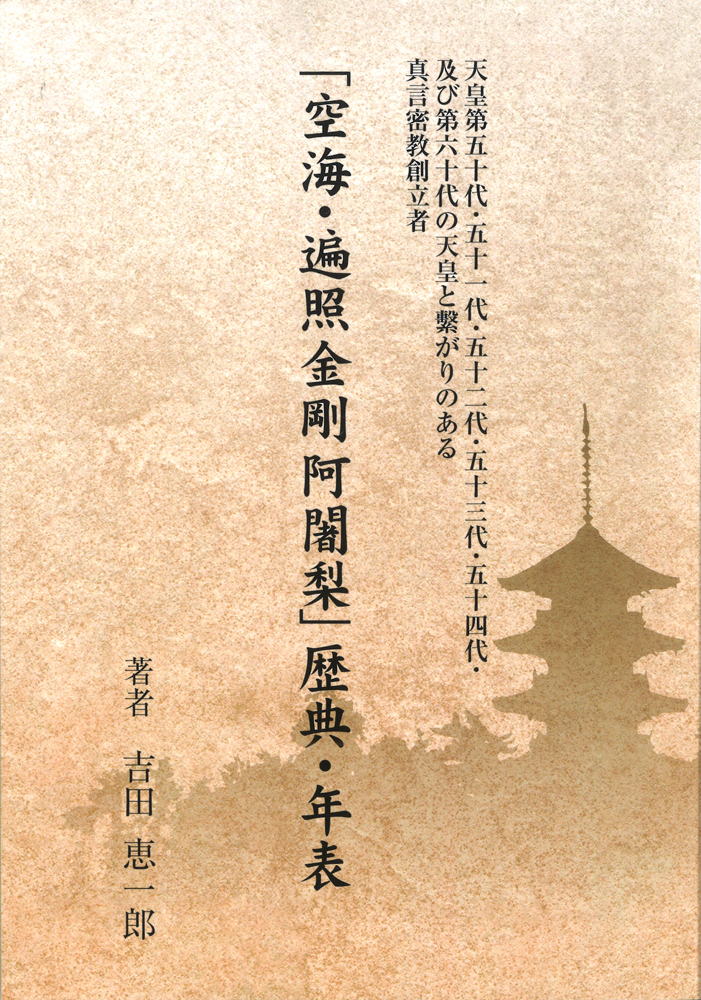 天皇第五十代・五十一代・五十二代・五十三代・五十四代・
及び第六十代の天皇と繫がりのある
真言密教創立者
「空海・遍照金剛阿闍梨」歴典・年表
著者 吉田 恵一郎